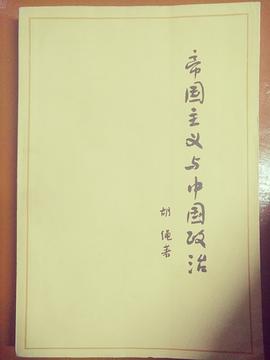 帝国主义与中国政治
胡绳著